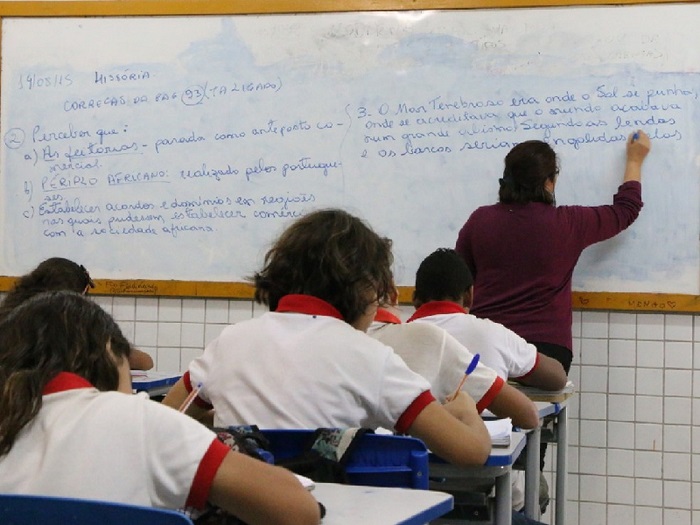 19/08/15 HISTÓRIA
CORREÇÃO DA PAG 93 (TÁ LIGADO)
2 Perceber que:
a) As feitorias - parada como anteposto co-
mercial.
b) PÉRIPLO AFRICANO: realizado pelos portugue-
ses
c) Estabelecer acordos e domínios em regiões
nas quais pudessem estabelecer comércio
com a sociedade africana.
3- O Mar Tenebroso era onde o Sol se punha,
onde se acreditava que o mundo acabava
num grande abismo. Segundo as lendas
e os barcos seriam engolidas